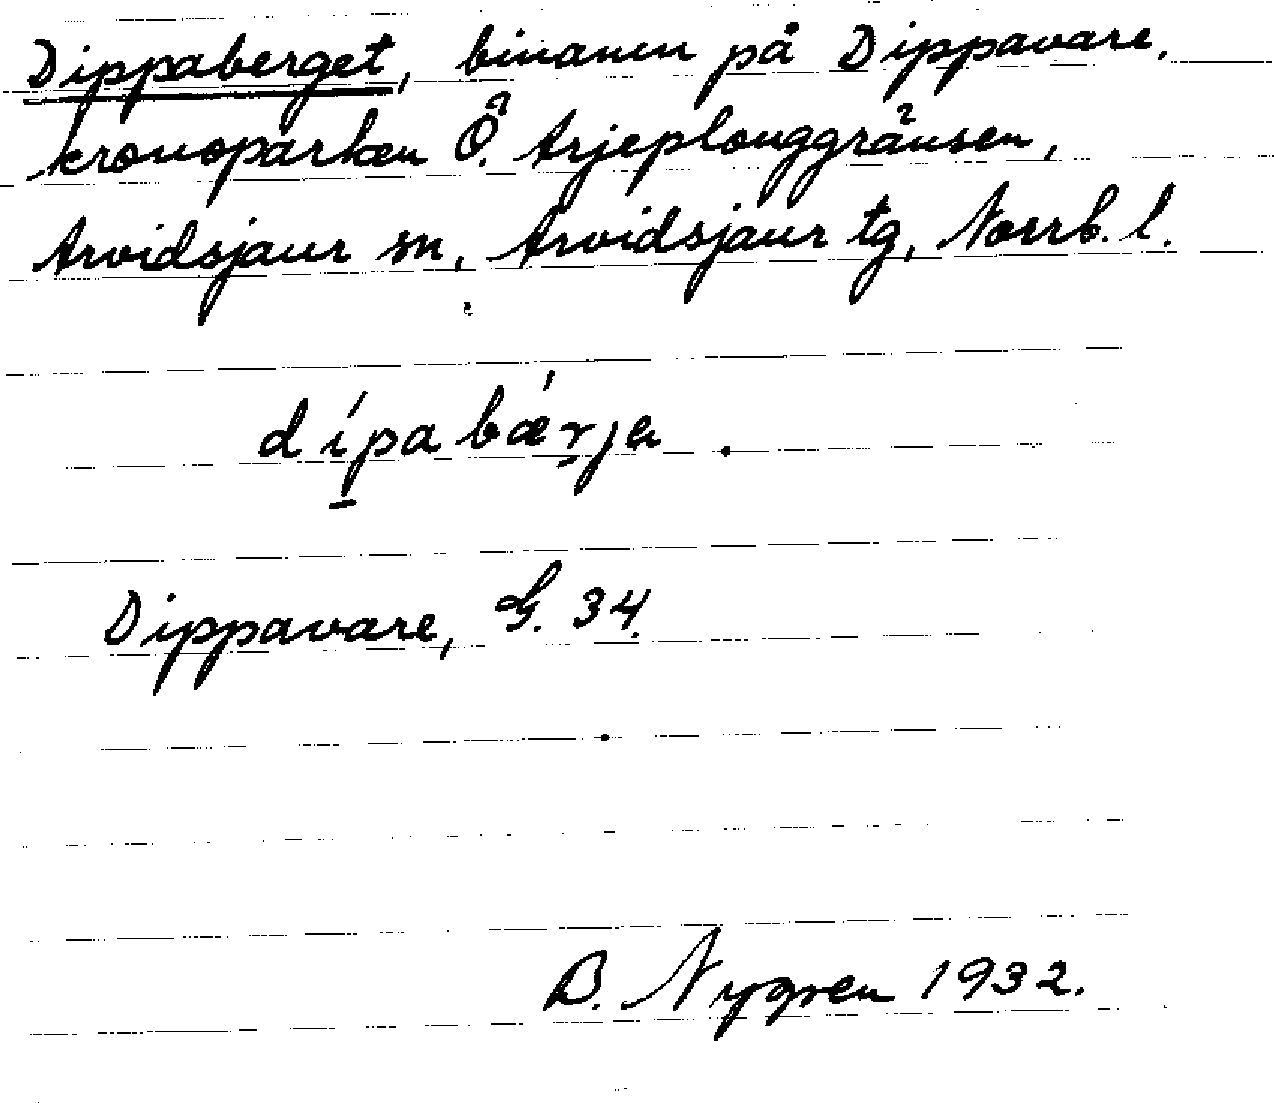 Dippaberget, binamn på Dippavare,
kronoparken Ö. Arjeplouggränsen,
Arvidsjaur sn, Arvidsjaur tg, Norrb. l.
dípabǽrja.
Dippavare, G. 34.
B. Nygren 1932.